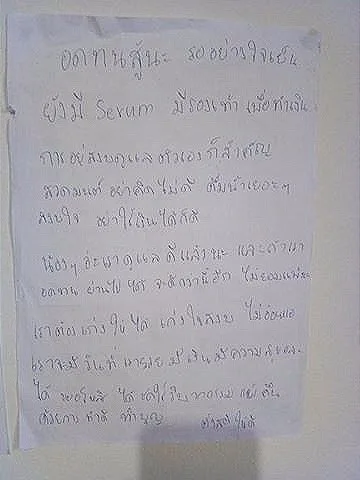 อดทนสู้นะ รออย่างใจเย็น
ยังมี Serum มีรองเท้า เพื่อทำเงิน
การอยู่สงบดูแลตัวเองก็สำคัญ
สวดมนต์ อย่าคิดไม่ดี ดื่มน้ำเยอะๆ
สงบใจ อย่าใช้เงินได้ก็ดี
น้องๆ เราดูแลดีแล้วนะ และถ้าเรา
อดทน ผ่านไปได้ จะดีกว่านี้อีก ไม่ยอมแพ้
เราต้องเก่งให้ได้ เก่งใจสงบ ไม่อ่อนแอ
เราจะมีวันที่ มีเงินมีความสุขและ
ได้ ได้ใช้
ด้วยการทำดี ทำบุญ